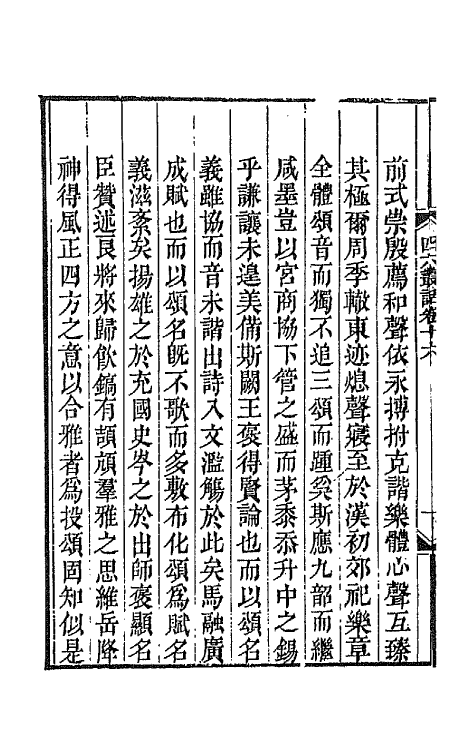 四六叢話卷十六
前式崇殷薦和聲依永搏拊克諧樂體心聲互臻
其極爾周季轍東迹熄聲寢至於漢初郊祀樂章
全體頌音而獨不追三頌而踵奚斯應九韶而繼
咸墨豈以宮商協下管之盛而茅黍忝升中之錫
乎謙讓未遑美備斯闕王褒得賢論也而以頌名
義雖協而音未諧出詩入文濫觴於此矣馬融廣
成賦也而以頌名旣不歌而多敷布化頌為賦名
義滋紊矣揚雄之於充國史岑之於出師褒顯名
臣贊述良將來歸飲鎬有頡頏羣雅之思維岳降
神得風正四方之意以合雅者為投頌固知似是